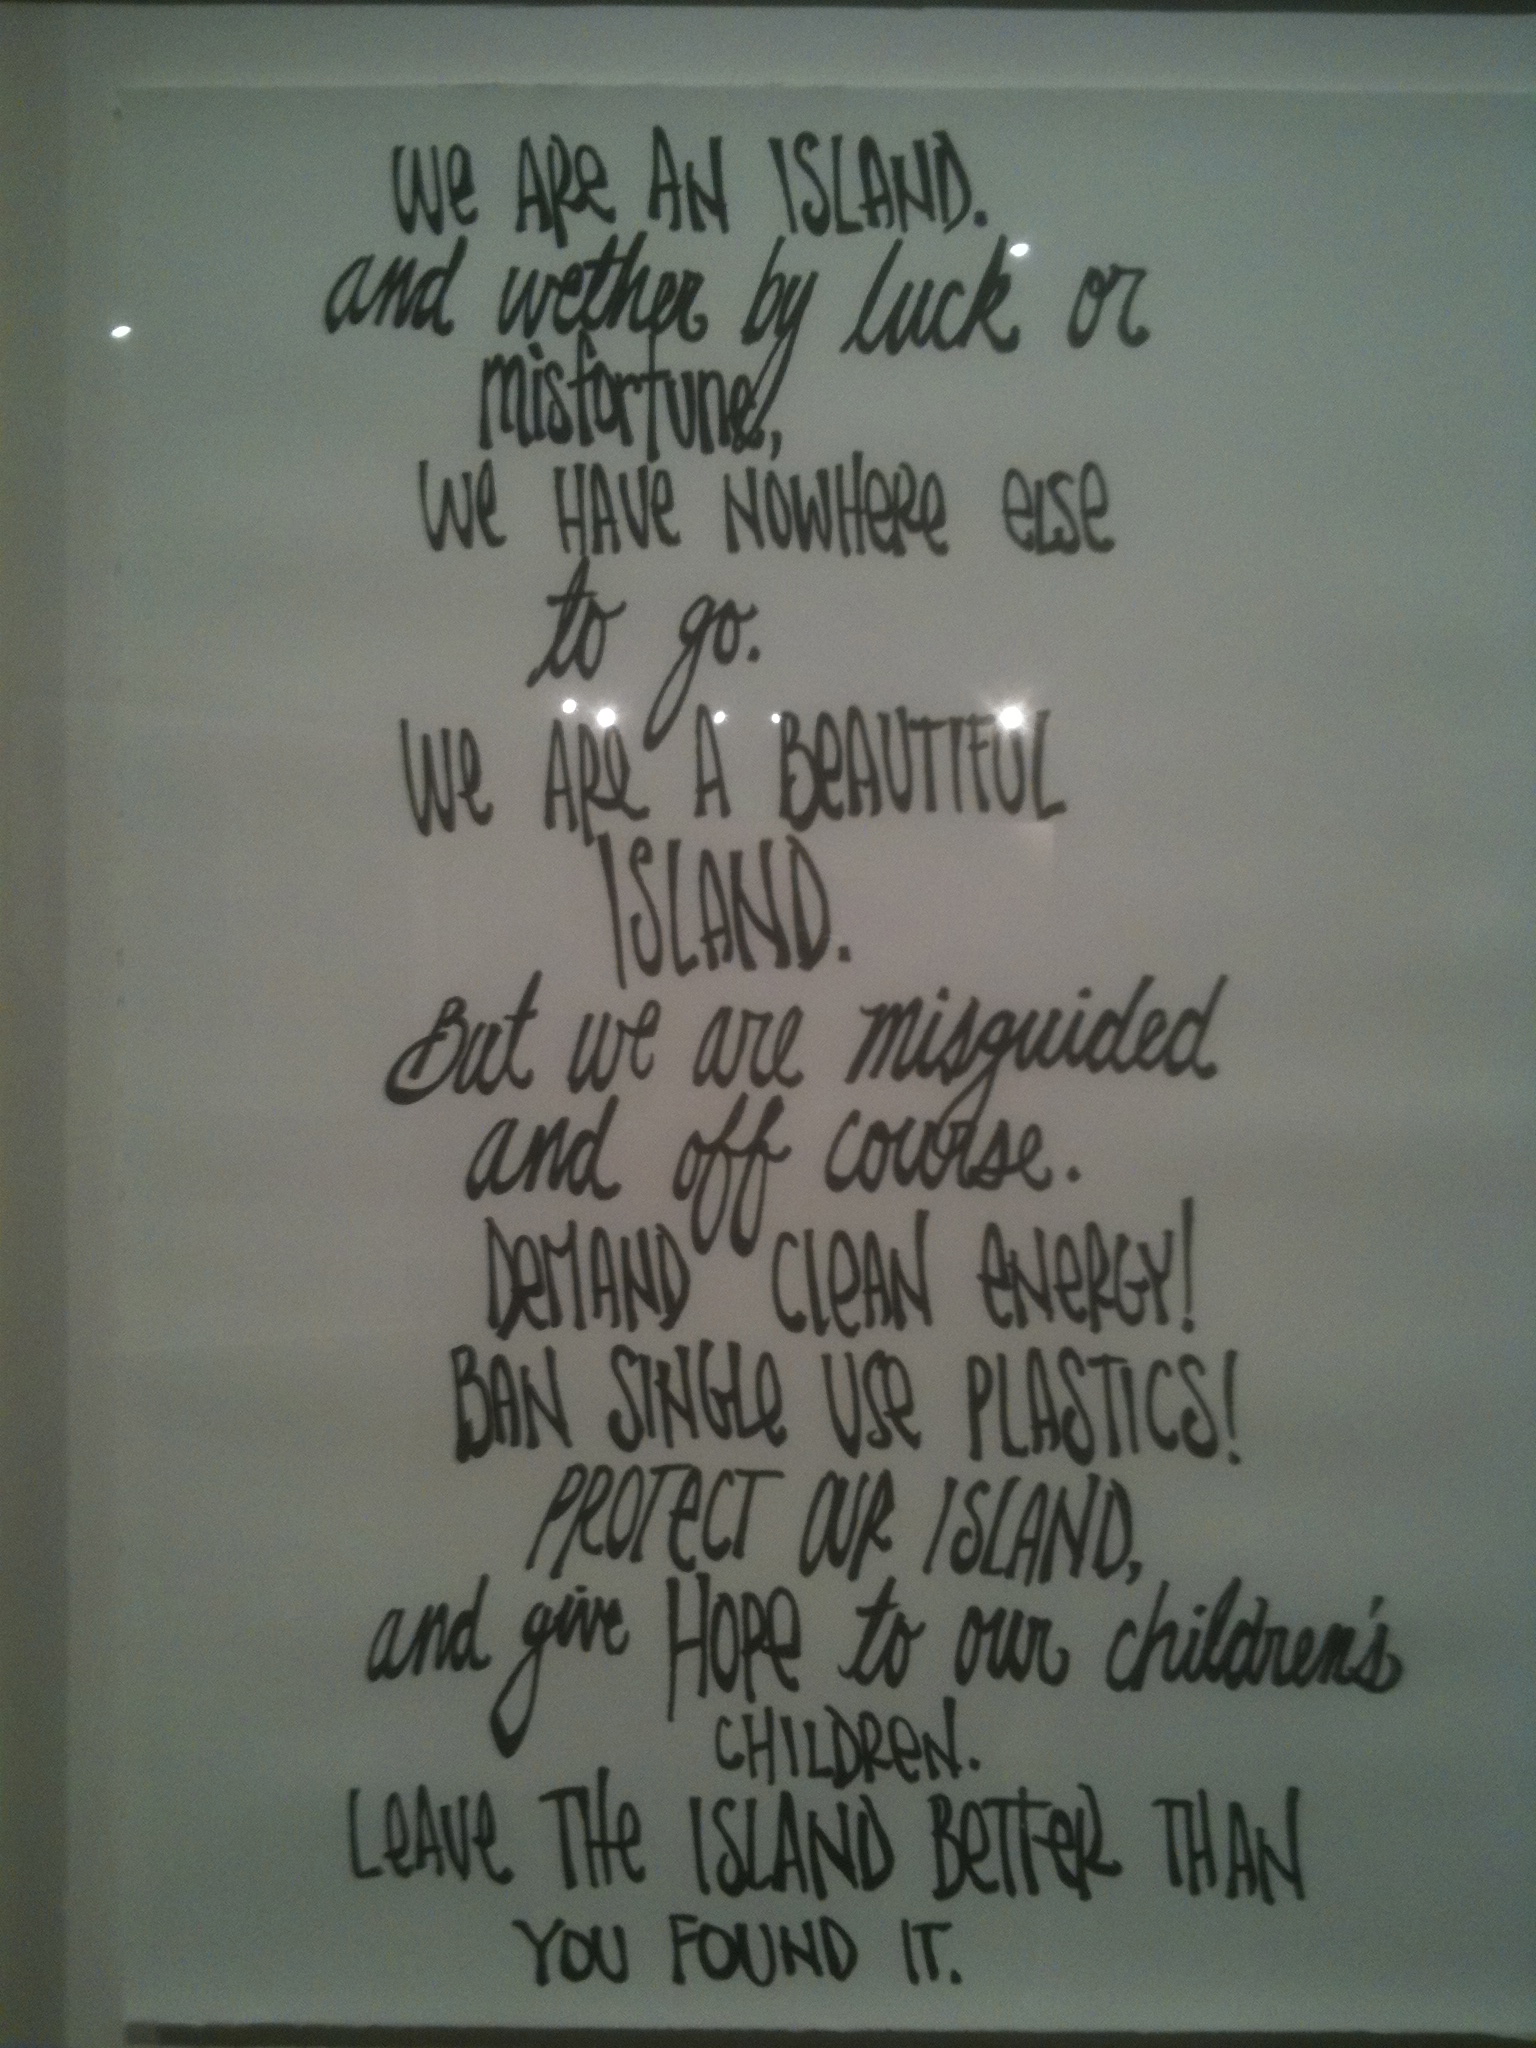 We ARe AN ISLAND.
and wether by luck or
misfortune,
We HAVe NOWHeRe eLSe
to go.
We ARe A BeAUTIFUL
ISLAND.
But we are misguided
and off course.
DeMAND CLeAN eNeRGY!
BAN SINGLe USe PLASTICS!
PROTeCT OUR ISLAND,
and give HOPe to our children's
CHILDReN.
LeAVe THe ISLAND BeTTeR THAN
YOU FOUND IT.